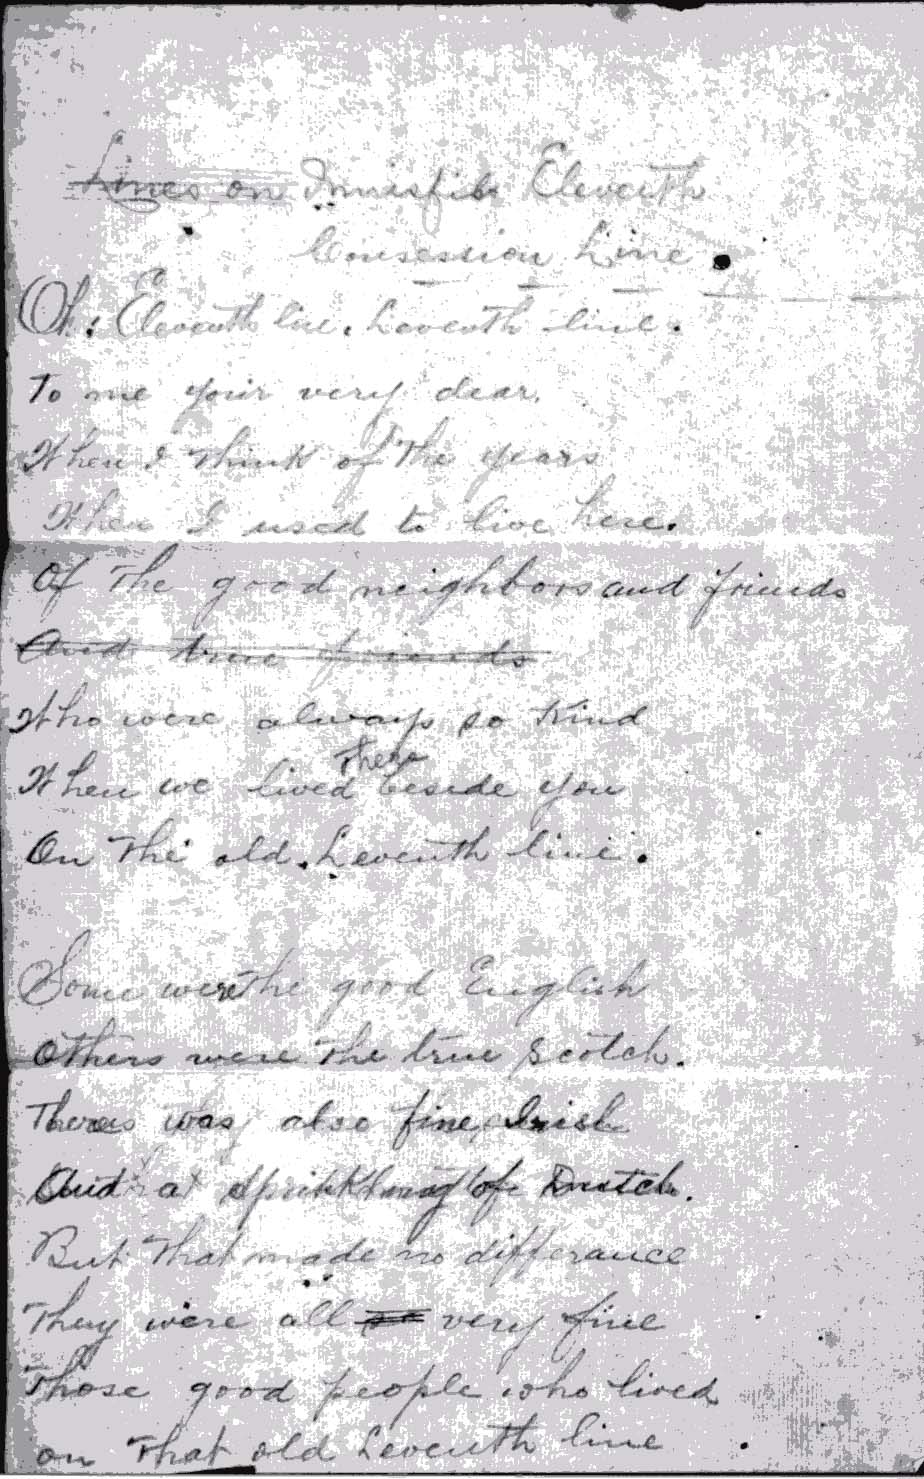 Lines on Innisfil Eleventh
Consession Line.
Oh. Eleventh line. Leventh line.
To me your very dear.
When I think of the years
When I used to live here.
Of the good neighbors and friends
And true friends
Who were always so kind
there
When we lived beside you
On the old Leventh line.
Some were the good English
Others were the true Scotch.
There was also fine Irish
And a of Dutch.
But that made no differance
They were all very fine
Those good people who lived
on that old Leventh line